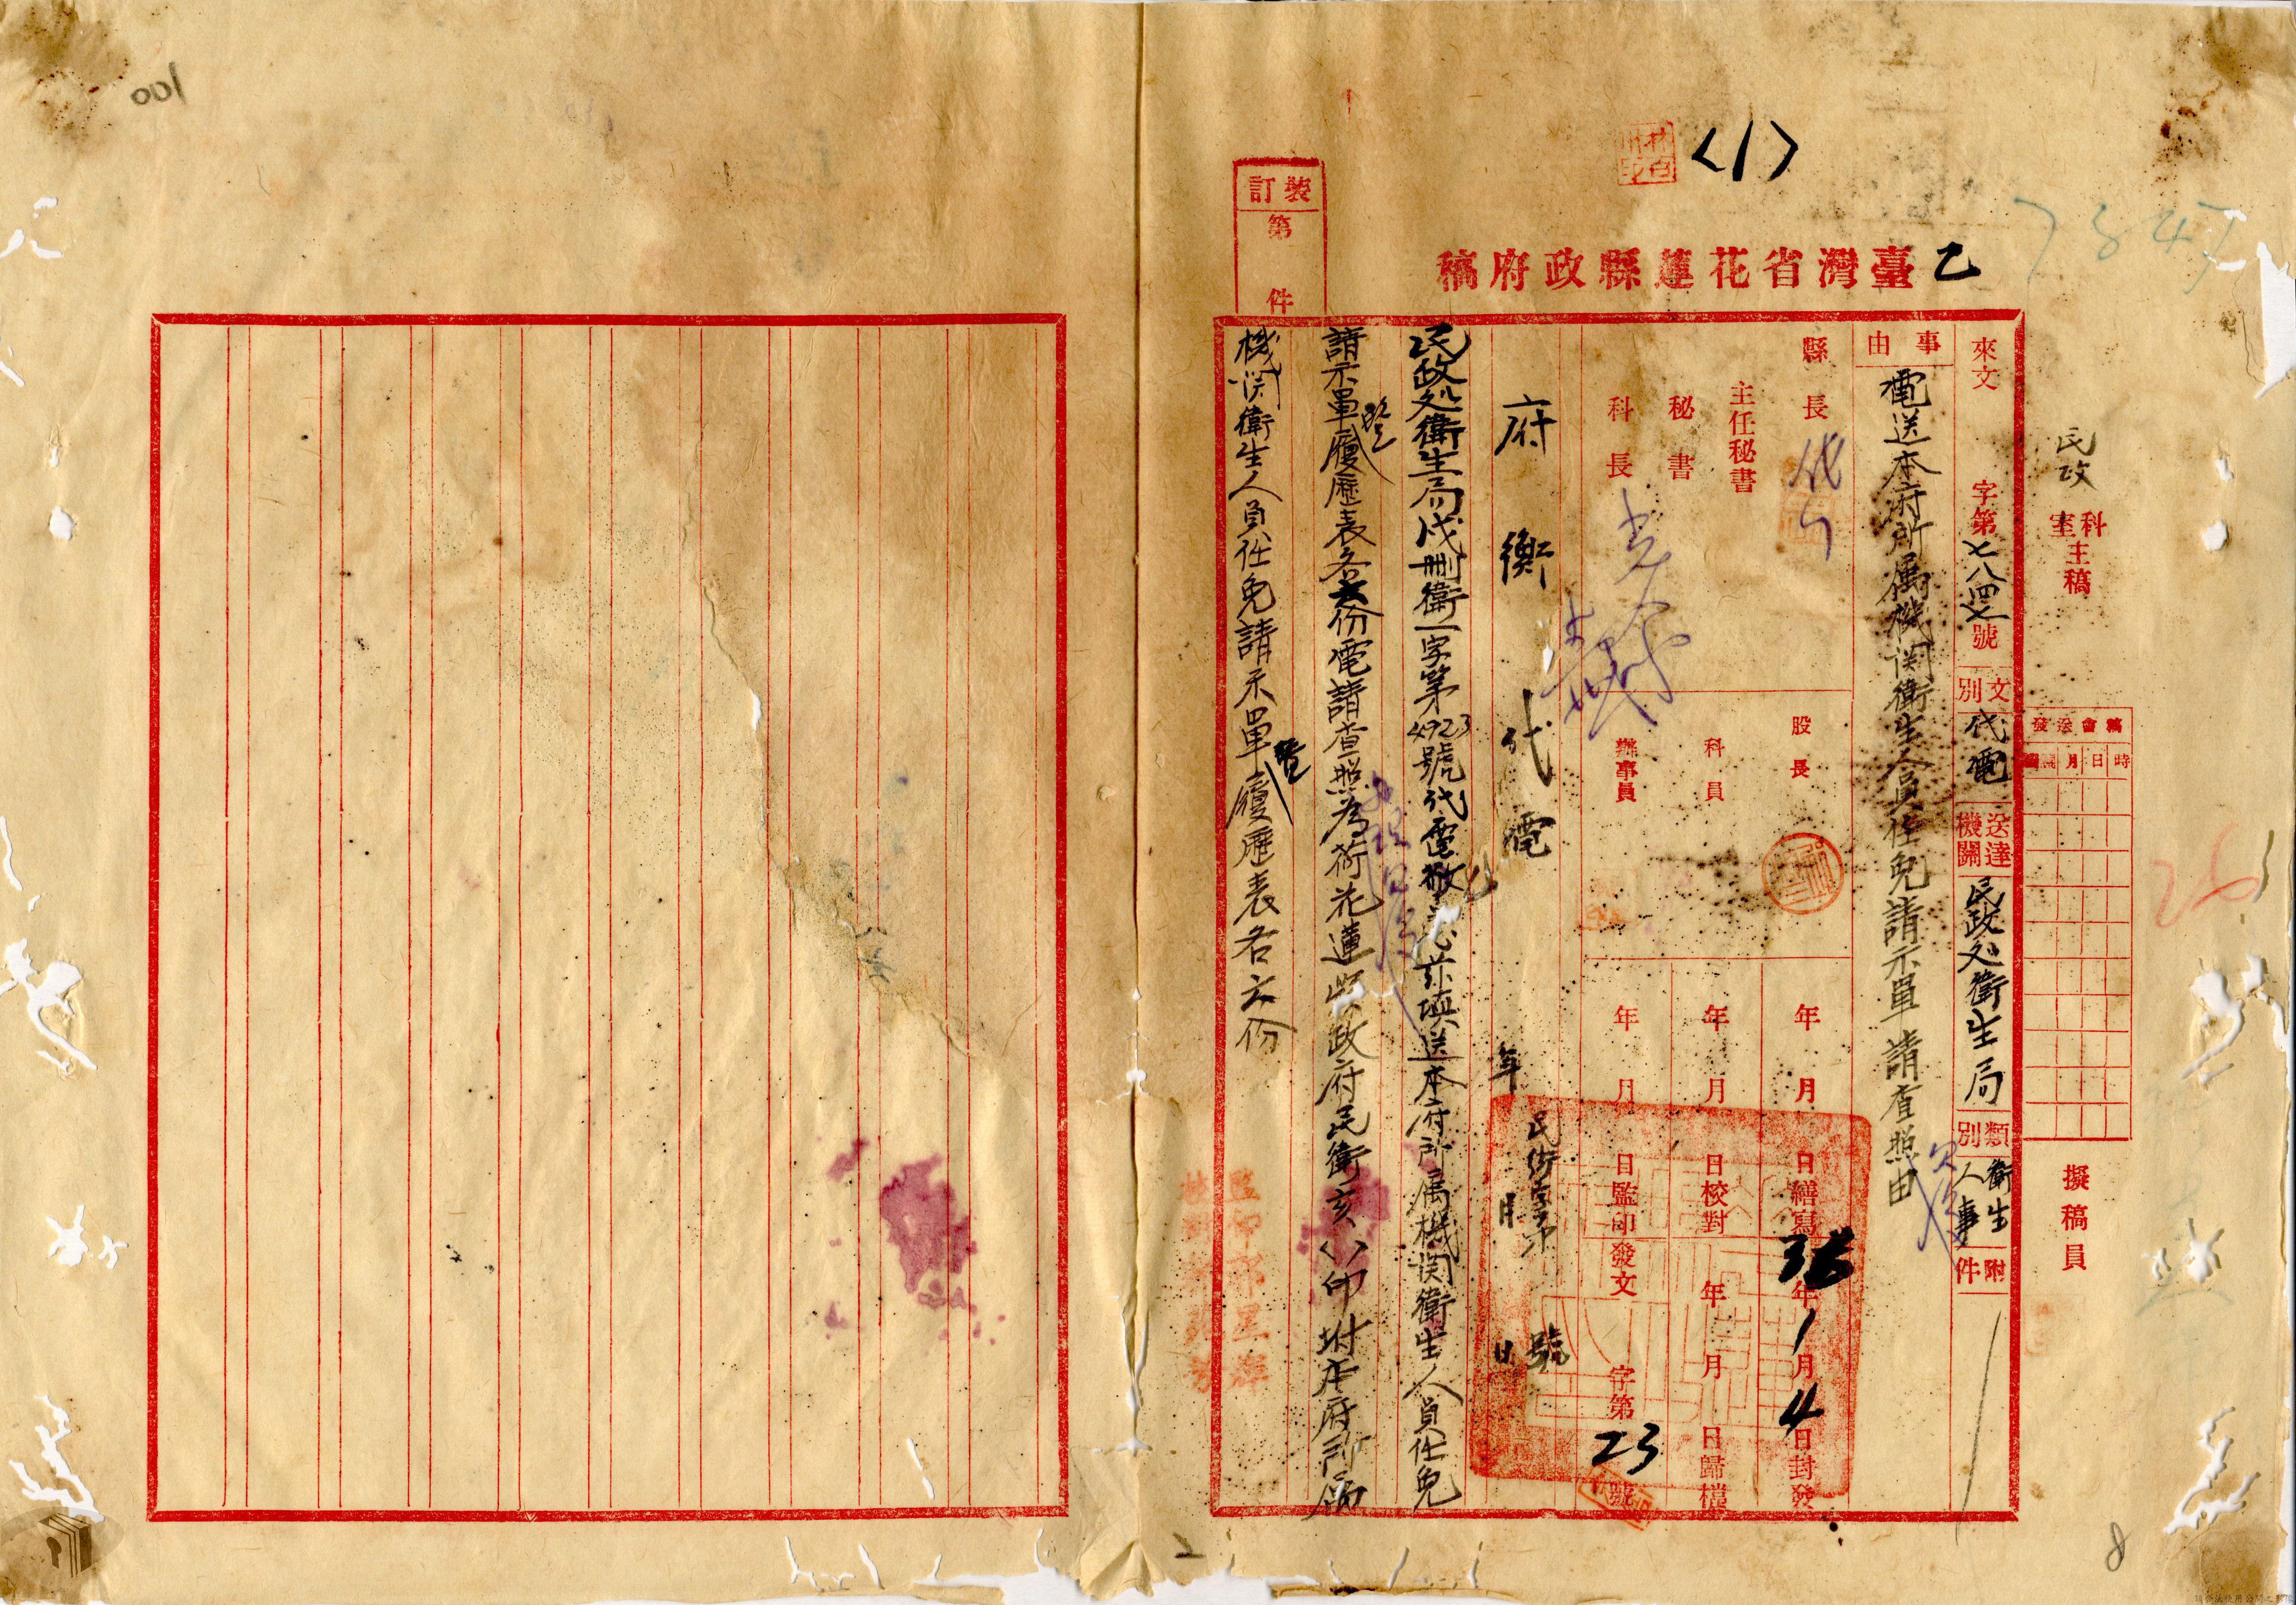 100
〈1〉
7847
裝訂
第 件
乙
臺灣省花蓮縣政府稿
民政
科室主稿
擬稿員
稿會送發
時日月
來文 字第七八四七號
文別 代電
送達機關 民政処衛生局
類別 衛生人事
附件
事由
電送本府所属機関衛生人員任免請示單請查照由
縣長
主任秘書
秘書
科長
股長
科員
辦事員
年月日繕寫
36年1月4日封發
年月日校對
年月日歸檔
年月日監印
發文 字第23號
府衛代電
年月日
民衛字第 號
民政処衛生局戌刪衛一字第4923號代電敬悉茲填送本府所属機関衛生人員任免
請示單暨履歷表各六份電請查照為荷花蓮縣政府民衛亥 印附本府所属
機関衛生人員任免請示單暨履歷表各六份
26
2
8